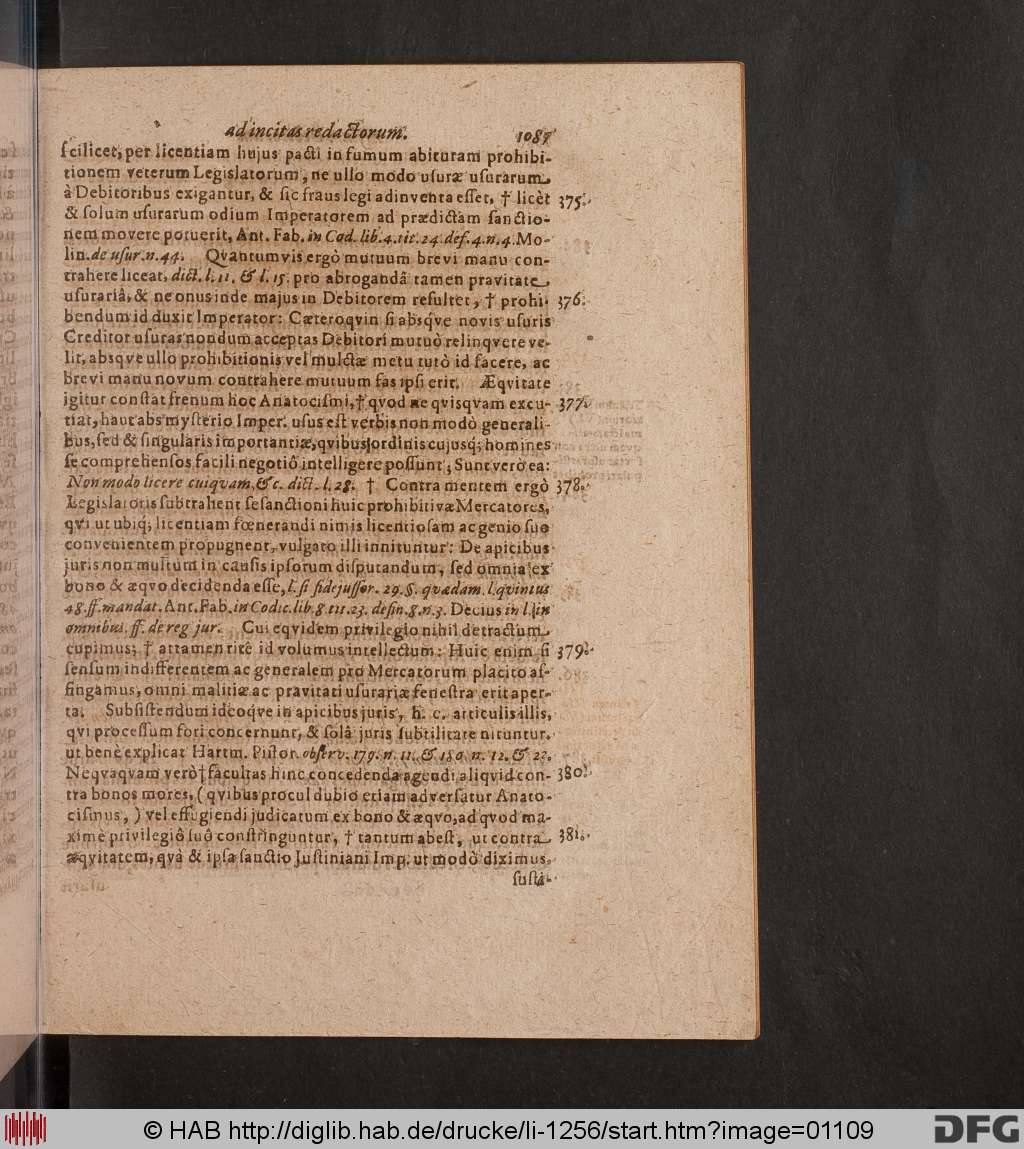 ad incitas redactorum. 1087
ſcilicet, per licentiam hujus pacti in fumum abituram prohibi-
tionem veterum Legislatorum, ne ullo modo uſuræ uſurarum
à Debitoribus exigantur, & ſic fraus legi adinventa eſſet, † licèt 375.
& ſolum uſurarum odium Imperatorem ad prædictam ſanctio-
nem movere potuerit, Ant. Fab. in Cod. lib. 4. tit. 24. def. 4. n. 4. Mo-
lin. de uſur. n. 44. Qvantumvis ergò mutuum brevi manu con-
trahere liceat, dict. l. 11. & l. 15. pro abrogandâ tamen pravitate
uſurariâ, & ne onus inde majus in Debitorem reſultet, † prohi- 376.
bendum id duxit Imperator: Cæteroqvin ſi absqve novis uſuris
Creditor uſuras nondum acceptas Debitori mutuò relinqvere ve-
lit, absqve ullo prohibitionis vel mulctæ metu tutò id facere, ac
brevi manu novum contrahere mutuum fas ipſi erit. Æqvitate
igitur conſtat frenum hoc Anatociſmi, † qvod ne qvisqvam excu- 377.
tiat, haut abs myſterio Imper. uſus eſt verbis non modò generali-
bus, ſed & ſingularis importantiæ, qvibus ordinis cujusq; homines
ſe comprehenſos facili negotiô intelligere poſſunt; Sunt verò ea:
Non modo licere cuiquam, & c. dict. l. 28. † Contra mentem ergò 378.
Legislatoris ſubtrahent ſe ſanctioni huic prohibitivæ Mercatores,
qvi ut ubiq; licentiam fœnerandi nimis licentioſam ac genio ſuo
convenientem propugnent, vulgato illi innituntur: De apicibus
juris non multum in cauſis ipſorum diſputandum, ſed omnia ex
bono & æqvo decidenda eſſe, l. ſi fidejuſſor. 29. §. quædam. l. qvintus
48. ff. mandat. Ant. Fab. in Codic. lib. 8. tit. 23. defin. 8. n. 3. Decius in l. in
omnibus. ff. de reg jur. Cui eqvidem privilegio nihil detractum
cupimus; † attamen ritè id volumus intellectum: Huic enim ſi 379.
ſenſum indifferentem ac generalem pro Mercatorum placito af-
fingamus, omni malitiæ ac pravitati uſurariæ feneſtra erit aper-
ta. Subſiſtendum ideoqve in apicibus juris, h. c. articulis illis,
qvi proceſſum fori concernunt, & ſolâ juris ſubtilitate nituntur.
ut benè explicat Hartm. Piſtor. obſerv. 179. n. 11. & 180. n. 12. & 22.
Neqvaqvam verò † facultas hinc concedenda agendi aliqvid con- 380.
tra bonos mores, (qvibus procul dubio etiam adverſatur Anato-
ciſmus,) vel effugiendi judicatum ex bono & æqvo, ad qvod ma-
ximè privilegiô ſuô conſtringuntur, † tantum abeſt, ut contra 381.
æqvitatem, qvà & ipſa ſanctio Juſtiniani Imp. ut modò diximus.
ſuſti-
© HAB http://diglib.hab.de/drucke/li-1256/start.htm?image=01109
DFG